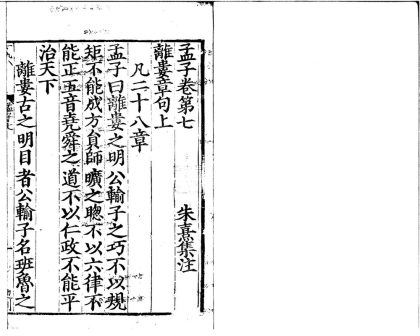 孟子卷第七
離婁章句上 朱熹集注
凡二十八章
孟子曰離婁之明公輸子之巧不以規
矩不能成方員師曠之聰不以六律不
能正五音堯舜之道不以仁政不能平
治天下
離婁古之明目者公輸子名班魯之